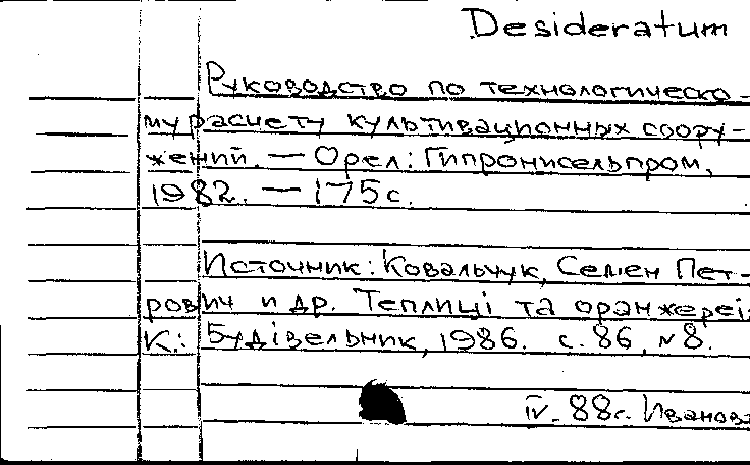 Desideratum
Руководство по технологическо-
му расчету культивационных соору-
жений. — Орел: Гипронисельпром,
1982. — 175 с.
Источник: Ковальчук, Семен Пет-
рович и др. Теплиці та оранжереї:
К.: Будівельник, 1986. с. 86, № 8.
IV. 88г. Иванова